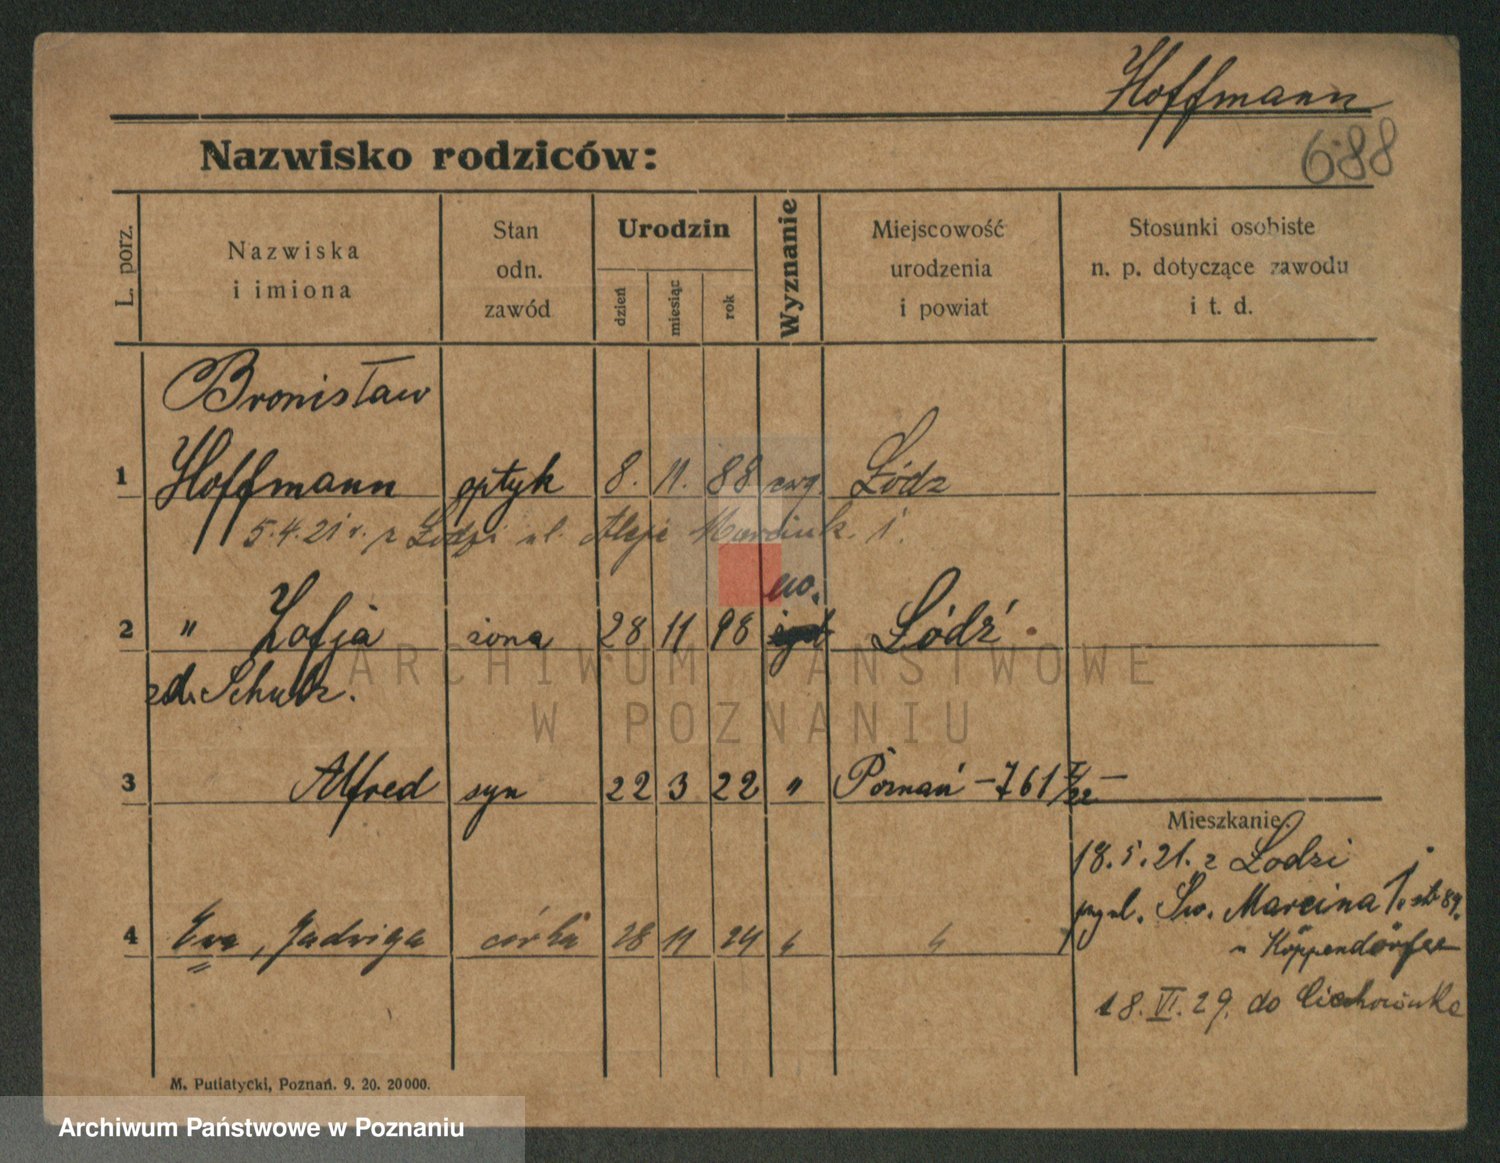 Hoffmann
Nazwisko rodziców:
688
L. porz.
Nazwiska
i imiona
Stan
odn.
zawód
Urodzin
dzień
miesiąc
rok
Wyznanie
Miejscowość
urodzenia
i powiat
Stosunki osobiste
n. p. dotyczące zawodu
i t. d.
Bronisław
1 Hoffmann optyk 8. 11. 88 ewg. Łódz
5.4.21 r. z Łodzi ul. Aleje Marcink. 1.
ew.
2 " Zofja żona 28 11 98 Łódź
zd. Schulz.
3 Alfred syn 22 3 22 " Poznań - 761 I/22 -
Mieszkanie:
18.5.21. z Łodzi
ul. Św. Marcina 1. 89.
4 Ewa, Jadwiga córka 28 11 24 " "
u Köppendörfer
18. VI. 29. do Ciechocinka
M. Putiatycki, Poznań. 9. 20. 20000.
ARCHIWUM PAŃSTWOWE
W POZNANIU
Archiwum Państwowe w Poznaniu